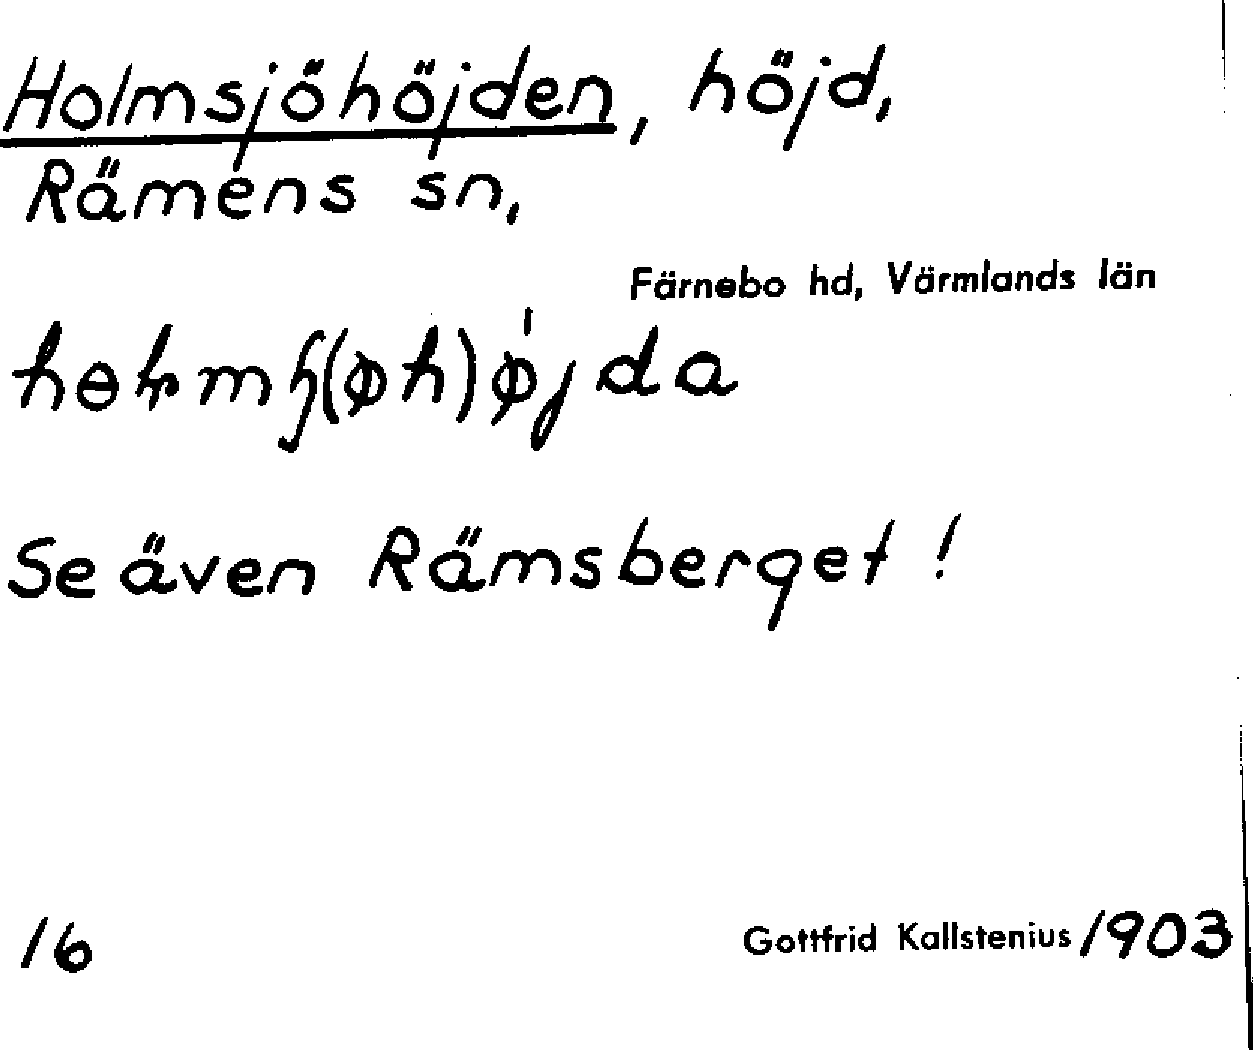 Holmsjöhöjden, höjd,
Rämens sn,
Färnebo hd, Värmlands län
Se även Rämsberget!
16 Gottfrid Kallstenius /1903